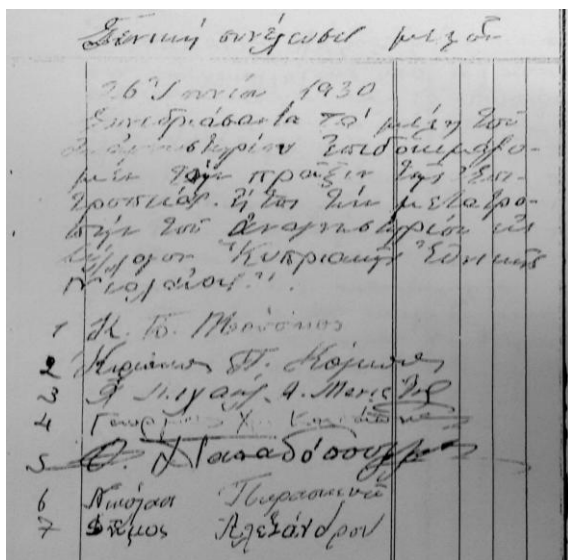 Γενική συνέλευσις μελών
26 Ιουνίου 1930
Συνεδριάσαντα τα μέλη του
Αναγνωστηρίου επιδοκιμάζο-
μεν την πράξιν της Επι-
τροπείας ήτοι την μετατρο-
πήν του αναγνωστηρίου εις
Σύλλογον "Κυπριακής Εθνικής
Νεολαίας".
1 Κ. Γ.
2 Κυριάκος Π.
3 Μιχαήλ Α.
4 Γεώργιος Χρ.
5 Θ. Παπαδόπουλλος
6 Νικόλαος Παρασκευά
7 Αλεξάνδρου